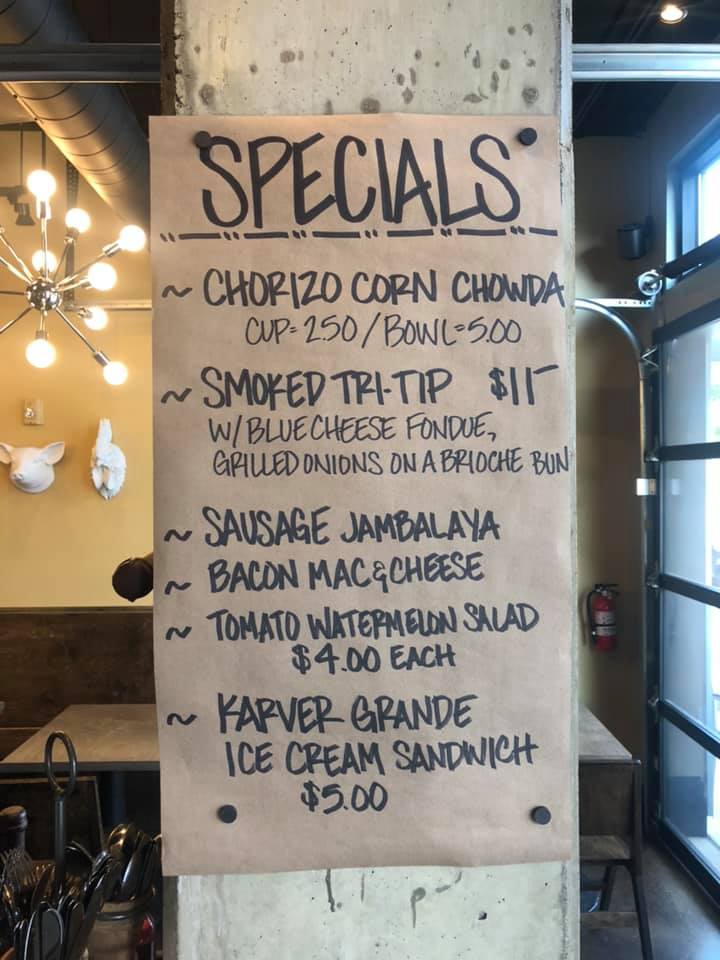 SPECIALS
~ CHORIZO CORN CHOWDA
CUP= 2.50 / BOWL=5.00
~ SMOKED TRI-TIP $11-
W/ BLUE CHEESE FONDUE,
GRILLED ONIONS ON A BRIOCHE BUN
~ SAUSAGE JAMBALAYA
~ BACON MAC & CHEESE
~ TOMATO WATERMELON SALAD
$4.00 EACH
~ KARVER GRANDE
ICE CREAM SANDWICH
$5.00